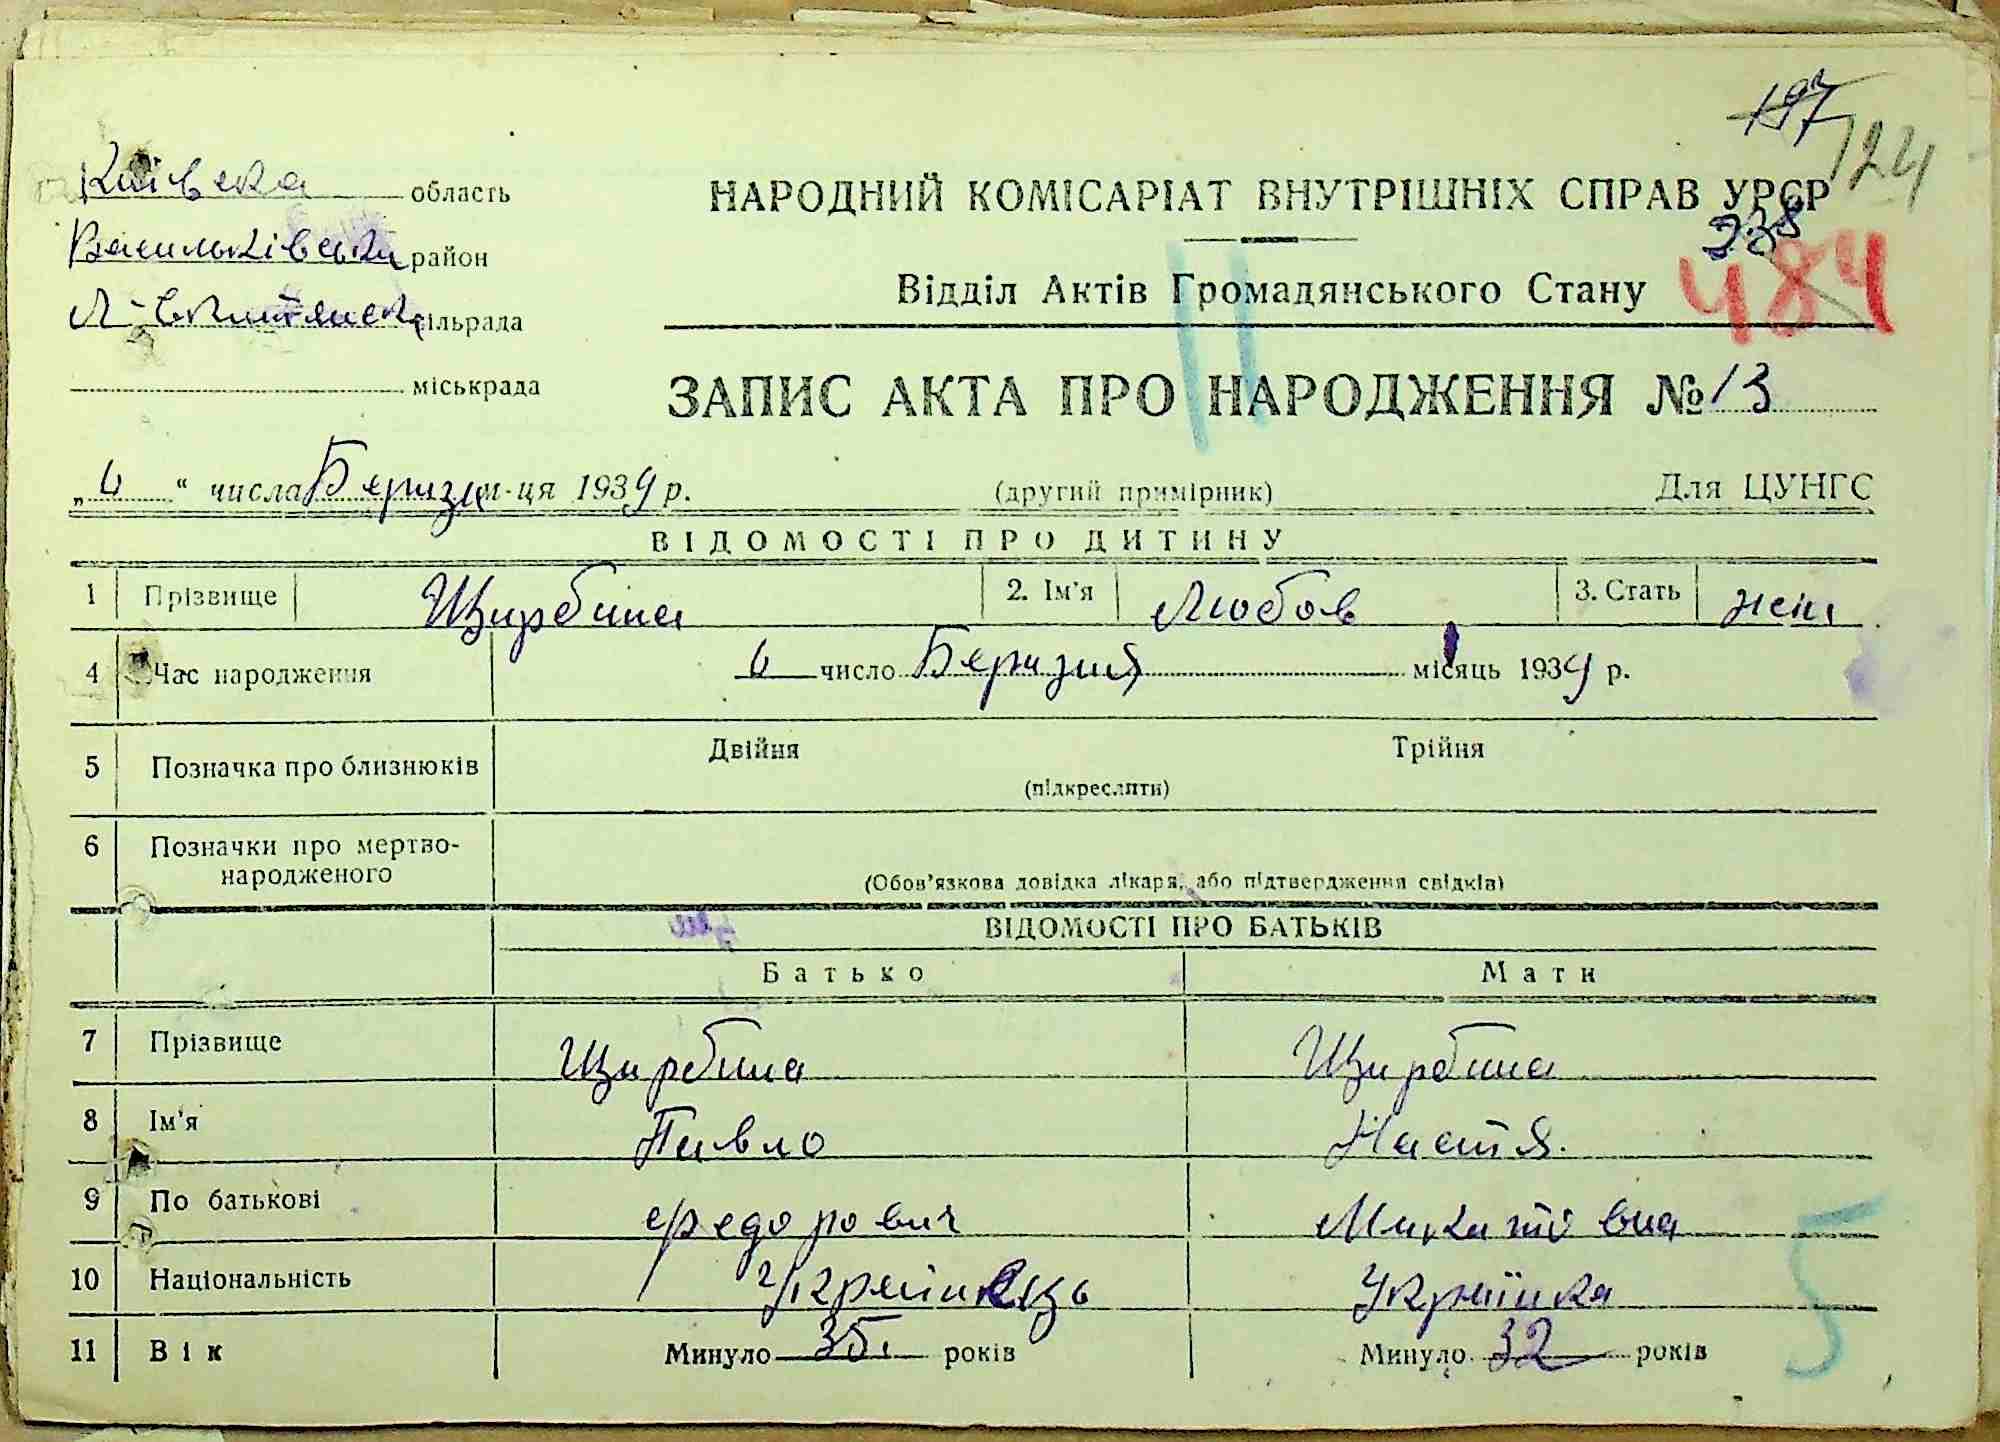 197
124
Київска область
НАРОДНИЙ КОМІСАРІАТ ВНУТРІШНІХ СПРАВ УРСР
Васильківська район
338
484
Відділ Актів Громадянського Стану
сільрада
міськрада
ЗАПИС АКТА ПРО НАРОДЖЕННЯ № 13
„6“ числа Беризн м-ця 1939 р.
(другий примірник)
Для ЦУНГС
ВІДОМОСТІ ПРО ДИТИНУ
1 Прізвище Щирбина 2. Ім'я Любов 3. Стать жен
4 Час народження 6 число Беризня місяць 1939 р.
5 Позначка про близнюків Двійня Трійня
(підкреслити)
6 Позначки про мертво-
народженого
(Обов'язкова довідка лікаря, або підтвердження свідків)
ВІДОМОСТІ ПРО БАТЬКІВ
Батько Мати
7 Прізвище Щирбина Щирбина
8 Ім'я Павло Настя.
9 По батькові Федорович Микитовна
10 Національність Українець Українка
11 Вік Минуло 35 років Минуло 32 років
5